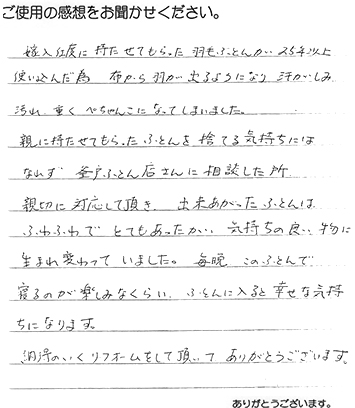 ご使用の感想をお聞かせください。
嫁入仕度に持たせてもらった羽毛ふとんが、25年以上
使い込んだ為 布から羽が出るようになり 汗がしみ
汚れ、重く ぺちゃんこになってしまいました。
親に持たせてもらったふとんを捨てる気持ちには
なれず 釜戸ふとん店さんに相談した所
親切に対応して頂き、出来あがったふとんは
ふわふわで とてもあったかい、気持ちの良い物に
生まれ変わって いました。毎晩、このふとんで
寝るのが楽しみなくらい、ふとんに入ると幸せな気持
ちになります。
納得のいくリフォームをして頂いて ありがとうございます。
ありがとうございます。